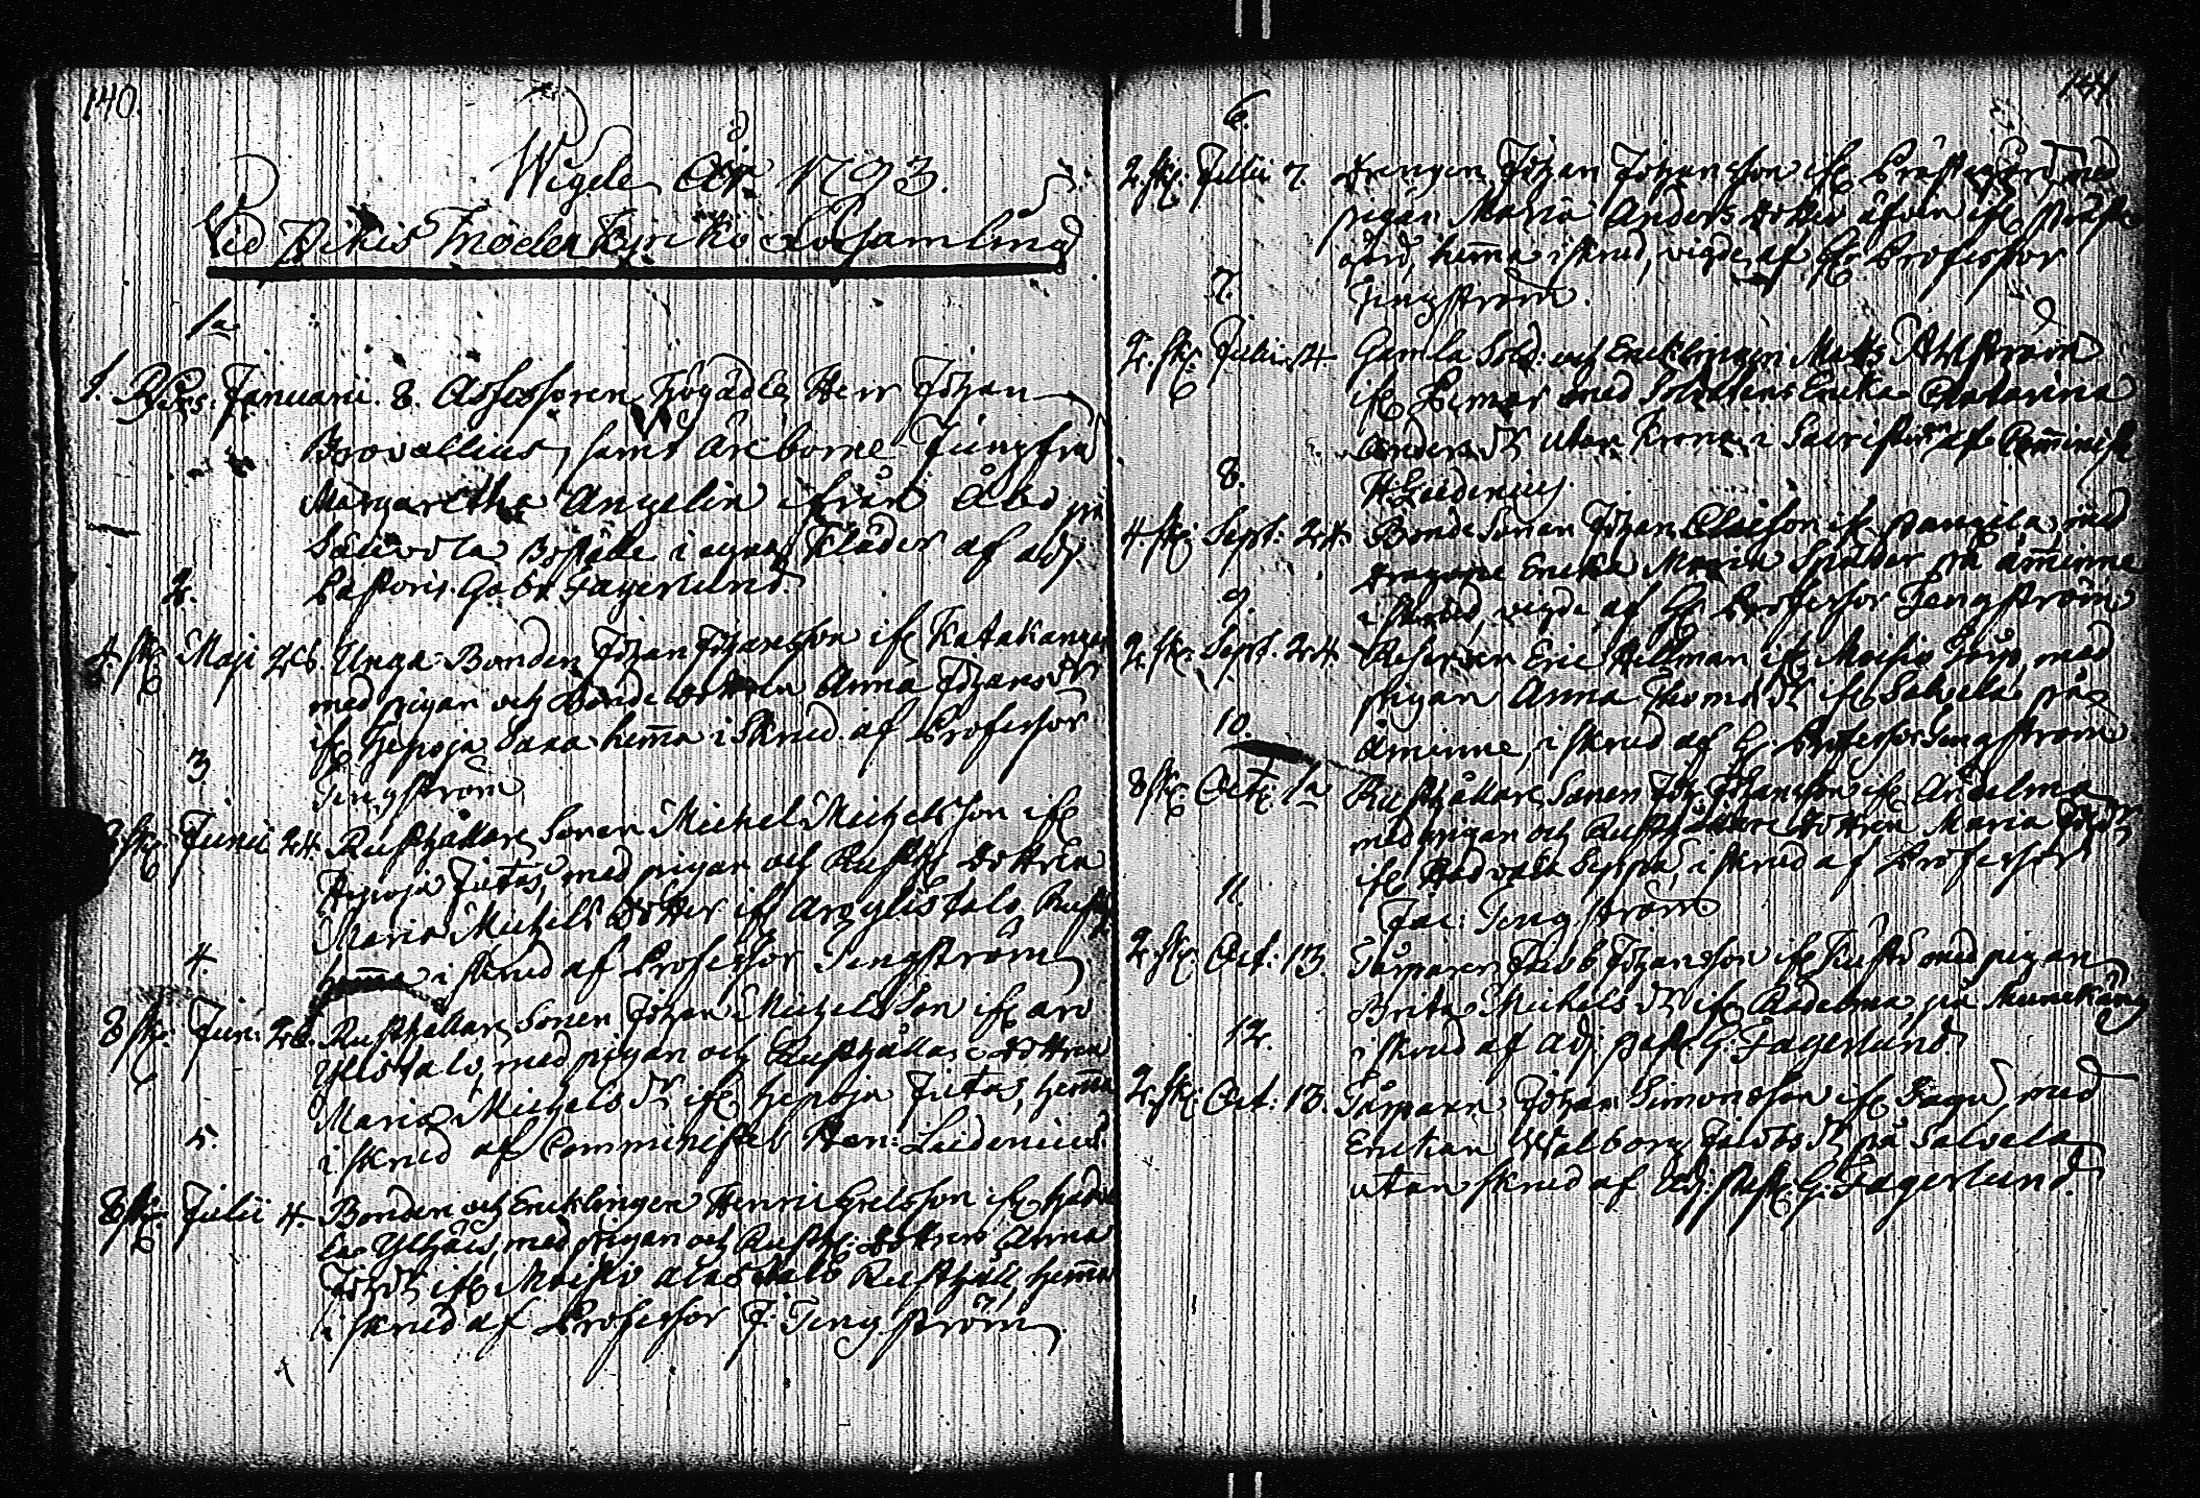 140.
Wigde År 1793.
Vid Pikis Moder Kyrko Församling
1a
1. Rds: Januarii. 8. Assessoren Högädle Herr Johan
Borovallius, samt Äreborne Jungfru
Margaretha Angelin ifrån Åbo på
Boställe i egna Kläder af adj
Pastoris Gabr. Fagerlund.
2.
4. sk: Maji 26. Unga Bonden Johan Johansson ifr Katakanger
med pigan och Bonde dottren Anna Johansdr
ifr Hepoja hema i Skrud af Professor
Tengström
3
sk: Junii 24. Rusthållare Sonen Michel Michelsson ifr
Hepoja Jutas, med pigan och Rusth dottren
Maria Michels dotter ifr Rusth
hema i skrud af Professor Tengström
4.
8 sk: Jun: 28. Rusthållare Sonen Johan Michelsson ifr arv
med pigan och Rusthållare dottren
Maria Michelsdr ifr Hepoja Jutas, hema
i skrud af Comministeb Hen: Leidenius.
5.
8 sk: Julii 4. Bonden och Encklingen Henric Grelsson ifr
med pigan och Rusth: dottren Anna
Johdr ifr Moisio alastalo Rusthåll, hema
i skrud af Professor J. Tengström
141.
6.
2. sk: Julii 7. drengen Johan Johansson ifr Prästegård med
pigan Maria Anders dotter äfven ifr Präste
gård, hema i skrud, vigde af Hr Professor
Tengström.
7.
2. sk: Julii 14. Gamla Sold: och Encklingen Matts Ahlström
ifr med Soldatens Encka Catharina
Andersdr utan Krona i Sacristian af Cominist
H. Leidenius
8.
4. sk: Sept: 24. Bonde Sonen Johan ifr med
Encka Maria på åminne
i skrud, vigde af Hr Professor Tengström
9.
2. sk: Sept. 24. Eric Hellman ifr Moisio med
pigan Anna Thomsdr ifr Salvela på
åminne, i skrud af Hr Professor Tengström
10.
8 sk: Oct: 1a Rusthållare Sonen Joh: Johansson ifr
med pigan och Rusthållare dottren Maria Johdr
ifr i skrud af Professor
Jac: Tengström
11.
2. sk: Oct: 13. Torparen Jacob Johansson ifr med pigan
Brita Michelsdr ifr Radelma, på
i skrud af Adj: past: G. Fagerlund
12.
2. sk: Oct: 13. Torparen Johan Simonsson ifr med
Enckan Walborg Jacobsdr på Salvela
utan skrud af Adj: past: G: Fagerlund.